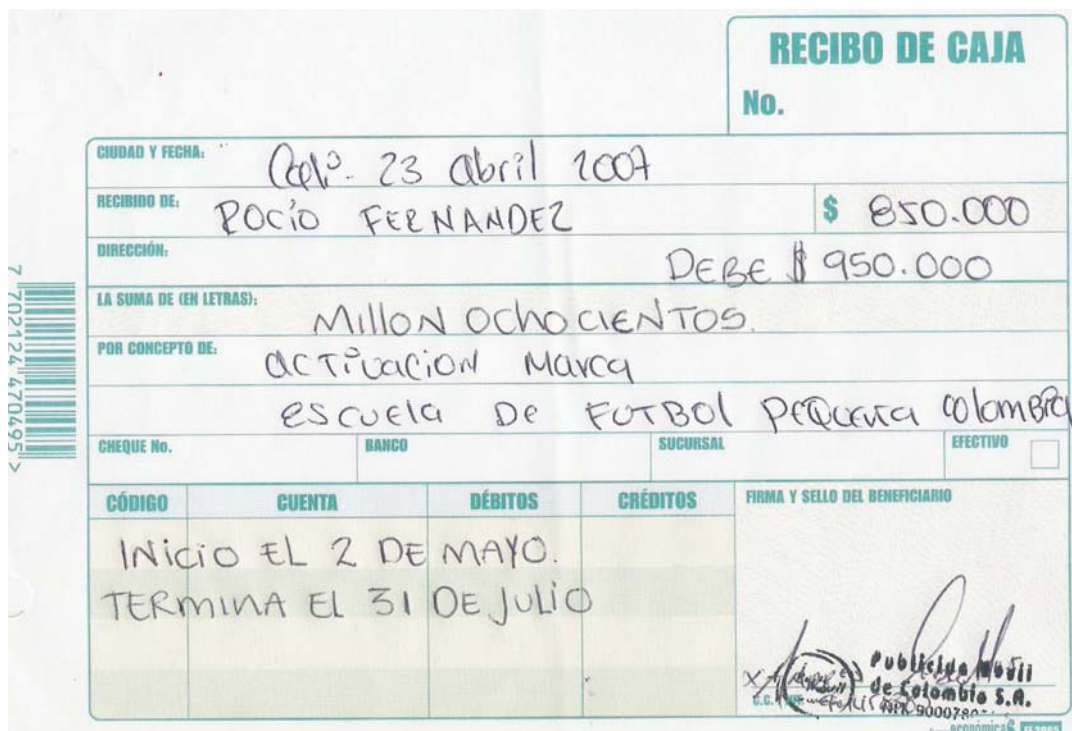 RECIBO DE CAJA
No.
CIUDAD Y FECHA: Cali - 23 abril 2007
RECIBIDO DE: ROCÍO FERNANDEZ $ 850.000
DIRECCIÓN: DEBE $ 950.000
LA SUMA DE (EN LETRAS): MILLON OCHOCIENTOS.
POR CONCEPTO DE: ACTIVACION Marca
escuela De FUTBOL Pequeña colombia
CHEQUE No. BANCO SUCURSAL EFECTIVO
CÓDIGO CUENTA DÉBITOS CRÉDITOS FIRMA Y SELLO DEL BENEFICIARIO
INICIO EL 2 DE MAYO.
TERMINA EL 31 DE JULIO
Movil
de Colombia S.A.
7 702124 470495 >